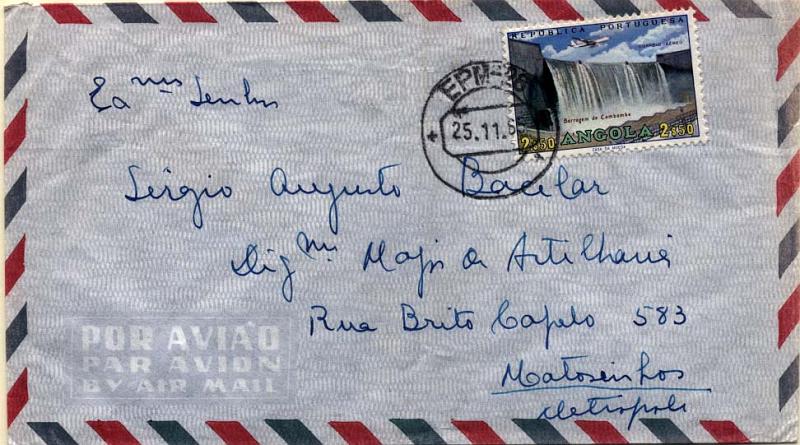 REPÚBLICA PORTUGUESA
CORREIO AÉREO
Barragem de Cambambe
2$50 ANGOLA 2$50
CASA DA MOEDA
EPM-26
25.11.6
Exmo Senhor
Sérgio Augusto Bacelar
Digmo Major de Artilharia
Rua Brito Capelo 583
Matosinhos
Metropole
POR AVIÃO
PAR AVION
BY AIR MAIL